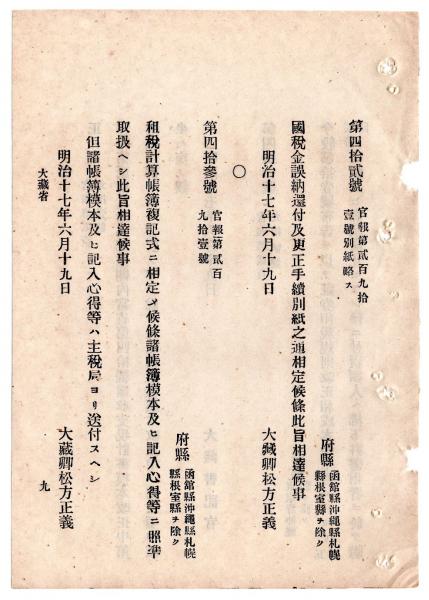 第四拾貳號　官報第貳百九拾
壹號別紙略ス
府縣　函館縣沖繩縣札幌
縣根室縣ヲ除ク
國税金誤納還付及更正手續別紙之通相定候條此旨相達候事
明治十七年六月十九日　大藏卿松方正義
○
第四拾參號　官報第貳百
九拾壹號
府縣　函館縣沖繩縣札幌
縣根室縣ヲ除ク
租税計算帳簿複記式ニ相定メ候條諸帳簿模本及ヒ記入心得等ニ照準
取扱ヘシ此旨相達候事
但諸帳簿模本及ヒ記入心得等ハ主税局ヨリ送付スヘシ
明治十七年六月十九日　大藏卿松方正義
大藏省　九